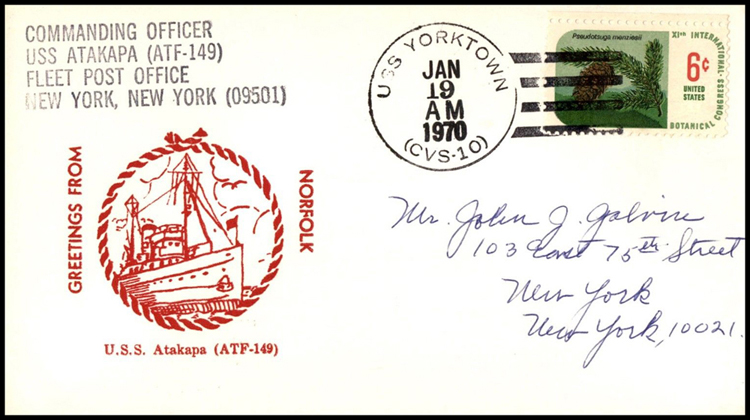 COMMANDING OFFICER
USS ATAKAPA (ATF-149)
FLEET POST OFFICE
NEW YORK, NEW YORK (09501)
USS YORKTOWN
JAN
19
AM
1970
(CVS-10)
Pseudotsuga menziesii
XIth INTERNATIONAL BOTANICAL CONGRESS
6¢
UNITED
STATES
GREETINGS FROM
NORFOLK
U.S.S. Atakapa (ATF-149)
Mr. John J. Galvin
103 East 75th Street
New York
New York, 10021.